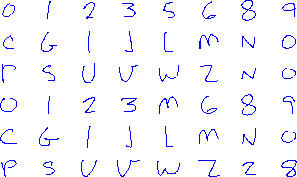 0 1 2 3 5 6 8 9
C G I J L M N O
P S U V W Z N O
0 1 2 3 M 6 8 9
C G I J L M N O
P S U V W Z 2 8